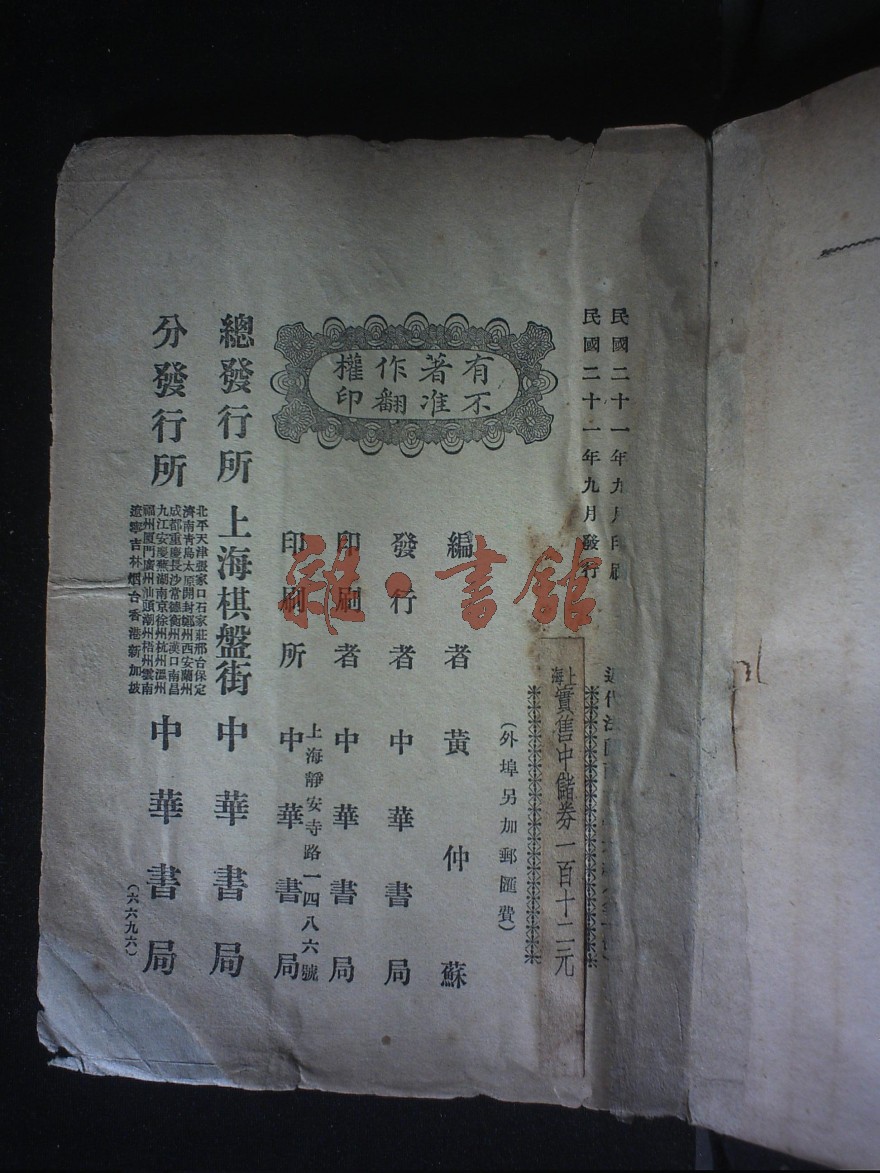 民國二十一年九月印刷
民國二十一年九月發行
有著作權
不准翻印
近代法
上海實售中儲券一百十二元
(外埠另加郵匯費)
編者 黃仲蘇
發行者 中華書局
印刷者 中華書局
上海靜安寺路一四八六號
印刷所 中華書局
總發行所 上海棋盤街 中華書局
分發行所
北平天津張家口石家莊邢台保定
濟南青島太原開封鄭州西安蘭州
成都重慶長沙常德衡州漢口南昌
九江安慶蕪湖南京徐州杭州溫州
福州厦門廣州汕頭潮州梧州雲南
遼寧吉林烟台香港新加坡
中華書局
(六六九六)
雜·書館